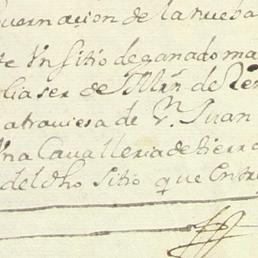 uernacion de la nueba
te Vn sitio de ganado ma
lia ser de Mrn de
atraviesa de Vn Juan
Vna Cavalleria de tierra
del dho Sitio que Entr